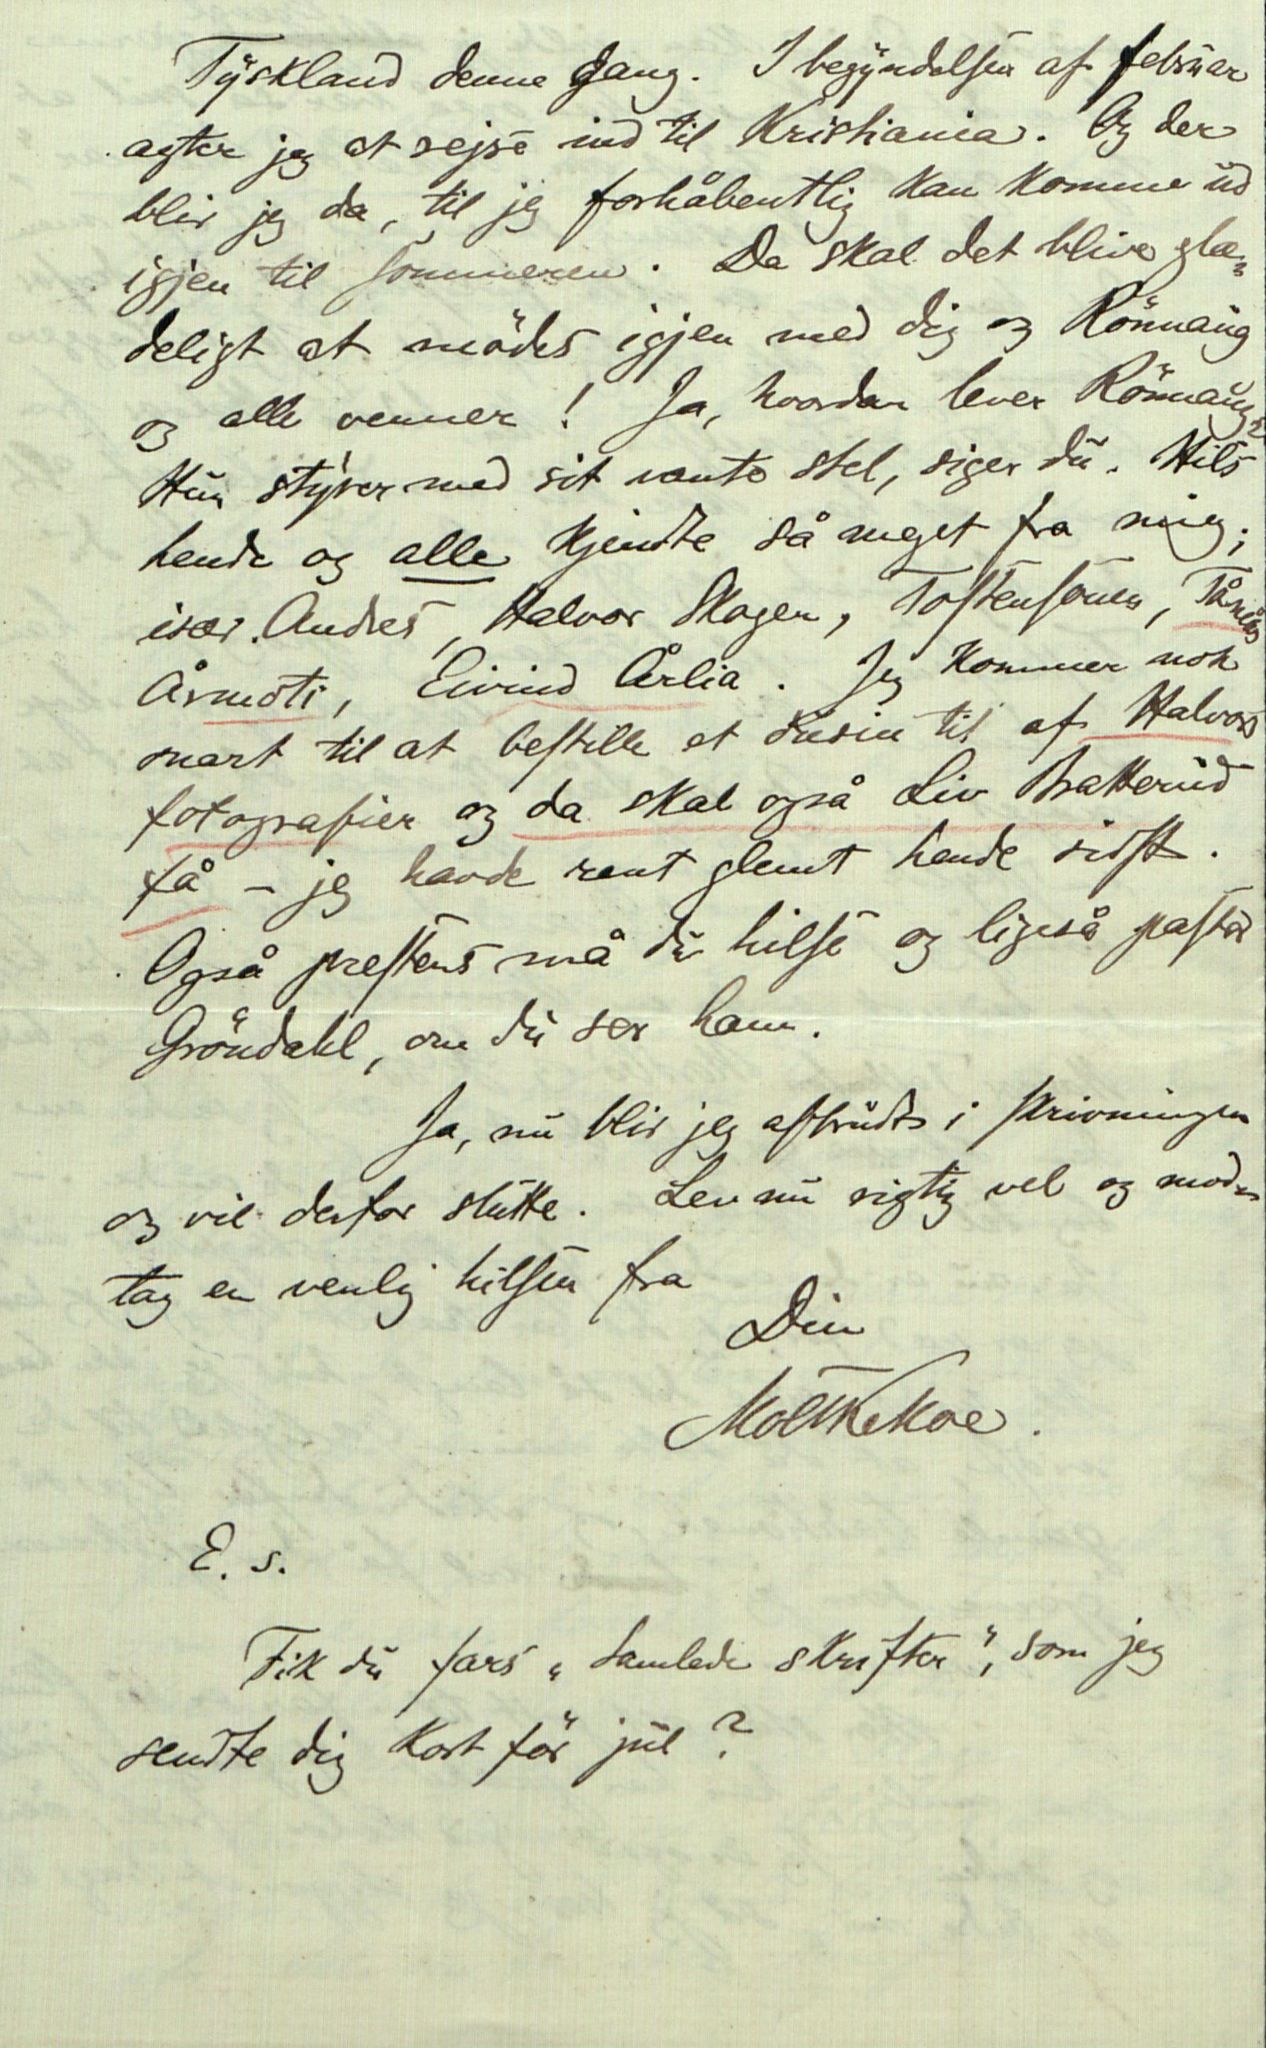 Tyskland denne gang. I begyndelsen af februar
agter jeg at rejse ind til Kristiania. Og der
blir jeg da, til jeg forhåbentlig kan komme ud
igjen til sommeren. Da skal det blive glæ-
deligt at mødes igjen med dig og Rönnaug
og alle venner! Ja, hvordan lever Rönnaug?
Hun styrer med sit vante stel, siger du. Hils
hende og alle kjendte så meget fra mig;
især Andres, Halvor Skogen, Tostensönen,
Årmoti, Eivind Årlia. Jeg kommer nok
snart til at bestille et dusin til af Halvors
fotografier og da skal også Liv Bratterud
få – jeg havde rent glemt hende sidst.
Også prestens må du hilse og ligeså pastor
Gröndahl, om du ser ham.
Ja, nu blir jeg afbrudt i skrivningen
og vil derfor slutte. Lev nu rigtig vel og mod-
tag en venlig hilsen fra
Din
Moltke Moe.
E. s.
Fik du fars „samlede skrifter“, som jeg
sendte dig kort för jul?